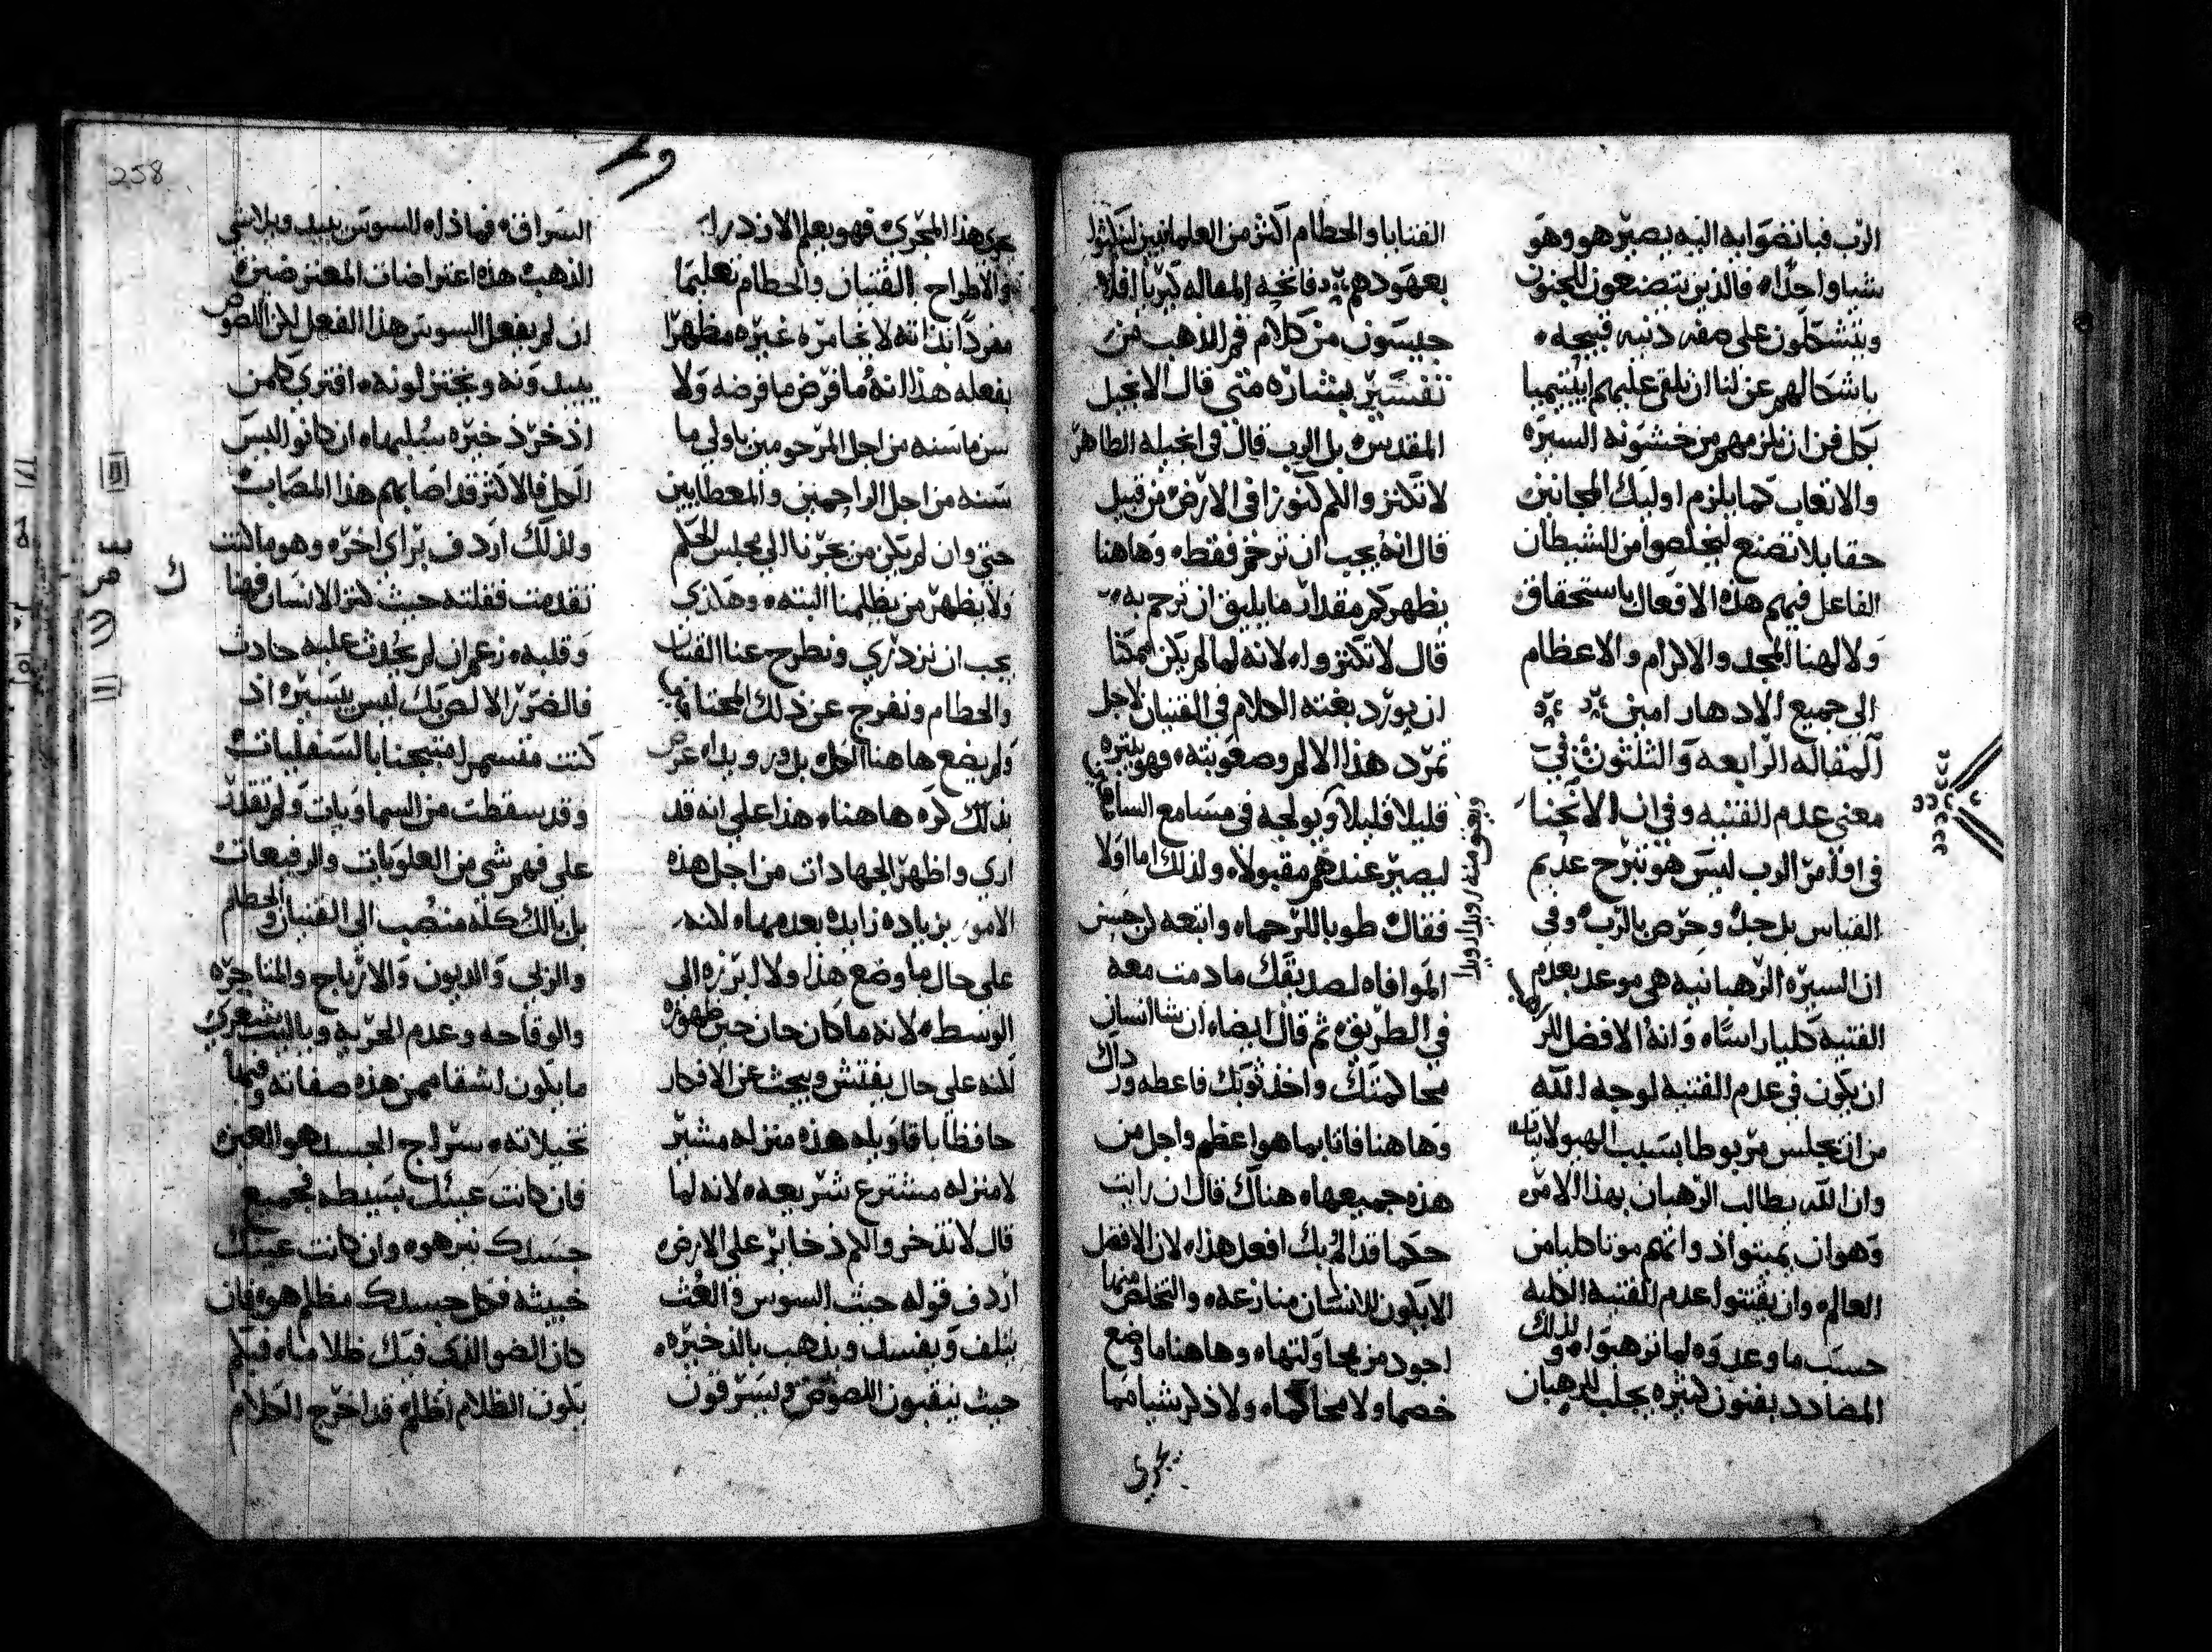 الرب فبانضوايه اليه يصير هو وهو
شيا واحدا، فالذين يتصنعون الجنون
ويتشكلون على صفه دنيه قبيحه،
باشكالهم عن لنا ان نلقى عليهم
بكل فن ان نلزمهم من خشونه السيره
والاتعاب كما يلزم اوليك المجانين
حقا بلا تصنع ليخلصوا من الشيطان
الفاعل فيهم هذه الافعال باستحقاق
ولالهنا المجد والاكرام والاعظام
الى جميع الادهار امين
المقاله الرابعه والثلثون في
معنى عدم القنيه وفي ان الانحنا
في اوامر الرب ليس هو تبرح عديم
القياس بل حب وحرص بالرب وفي
ان السيره الرهبانيه هي موعد بعدم
القنيه كليا راسا، وانه الافضل للراهب
ان يكون في عدم القنيه لوجه الله
من ان يجلس مربوطا بسبب الهيولانيات
وان الله يطالب الرهبان بهذا الامر
وهو ان يميتوا ذواتهم موتا كليا من
العالم وان يقتنوا عدم القنيه الكليه
حسب ما وعدوه لما ترهبوا، ولذلك
المضادد بفنون كثيره يجلب للرهبان
القنايا والحطام اكثر من العلمانيين لينكثوا
بعهودهم، فاتحه المقاله كيريا افلا
جيسون من كلام فم الذهب من
تفسير بشاره متى قال الانجيل
المقدس، بل الرب قال في انجيله الطاهر
لا تكنزوا لكم كنوزا في الارض، من قبيل
قال انه يجب ان ترحم فقط، وهاهنا
يظهر كم مقدار ما يليق ان نرحم به،
قال لا تكنزوا، لانه لما لم يكن ممكنا
ان يورد بغته الكلام في القنيان لاجل
تمرد هذا الالم وصعوبته، فهو يبتره
قليلا قليلا ويولجه في مسامع السامعين
ويعتق منه رويدا رويدا
ليصير عندهم مقبولا، ولذلك اما اولا
فقال طوبا للرحما، واتبعه كن حسن
الموافاه لصديقك ما دمت معه
في الطريق، ثم قال ايضا، ان شا انسان
محاكمتك واخذ ثوبك فاعطه ورداك
وهاهنا فاتا بما هو اعظم واجل من
هذه جميعها، هناك قال ان رايت
حكما قد الم بك افعل هذا، لان الافضل
الا يكون للانسان منازعه، والتخلص منها
اجود من محاولتها، وهاهنا ما وضع
خصما ولا محاكما، ولا ذكر شيا مما
يجري
يجري هذا المجرى، فهو يعلم الازدرا
والاطراح بالقنيان والحطام تعليما
مفردا بذاته لا يخامره غيره مظهرا
بفعله هذا انه ما فرض ما فرضه ولا
سن ما سنه من اجل المرحومين باولى ما
سنه من اجل الراحمين والمعطايين
حتى وان لم يكن من يجرنا الى مجلس الحكم
ولا يظهر من يظلمنا البته، وهكذى
يجب ان نزدري ونطرح عنا القنايا
والحطام ونفرج عن ذلك المحتاجين
ولم يضع هاهنا الكل، بل رويدا عرض
بذلك كره هاهنا، هذا على انه قد
ارى واظهر الجهادات من اجل هذه
الامور بزياده زايده بعدمها، لكنه
على حال ما وضع هذا ولا ابرزه الى
الوسط، لانه ما كان حان حين ظهوره
لكنه على حال يفتش ويبحث عن الافكار
حافظا باقاويله هذه منزله مشير
لا منزله مشترع شريعه، لانه لما
قال لا تذخروا لكم ذخاير على الارض
اردف قوله حيث السوس والعث
يتلف ويفسد ويذهب بالذخيره،
حيث ينقبون اللصوص ويسرقون
السراق، فماذا، السوس يبيد ويلاشي
الذهب، هذه اعتراضات المعترضين،
ان لم يفعل السوس هذا الفعل لكن اللصوص
يبيدونه ويختزلونه، افترى كل من
اذخر ذخيره سُلبها، ان كانوا ليس
الكل فالاكثر قد اصابهم هذا المصاب
ولذلك اردف براي اخر، وهو ما كنت
تقدمت فقلته حيث كنز الانسان فهنا
وقلبه، زعم ان لم يحدث عليه حادث
فالضرر الالصق بك ليس بيسير، اذ
كنت مقسم لمتبجنا بالسفليات
وقد سقطت من السماويات ولم تقدر
على فهم شي من العلويات والرفيعات
بل بالك كله منصب الى القنيان والحطام
والربى والديون والارباح والمتاجره
والوقاحه وعدم الحريه ويا ليت شعري
ما يكون اشقا ممن هذه صفاته وفيما
تخيلاته، سراج الجسد هو العين،
فان كانت عينك بسيطه فجميع
جسدك نير هو، وان كانت عينك
خبيثه فكل جسدك مظلم هو، فان
كان الضو الذى فيك ظلاما، فكم
يكون الظلام اظلم، قد اخرج الكلام
258